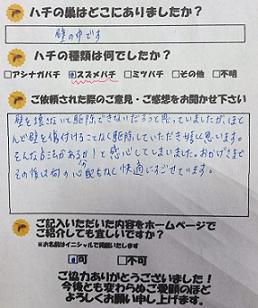 ハチの巣はどこにありましたか？
壁の中です
ハチの種類は何でしたか？
□アシナガバチ ☑スズメバチ □ミツバチ □その他 □不明
ご依頼された際のご意見・ご感想をお聞かせ下さい
壁を壊さないと駆除できないだろうと思っていましたが、ほとん
んで壁を傷付けることなく駆除していただき嬉しく思います。
そんなことがあるか！と感心してしまいました。おかげさまで
その後は何の心配もなく快適にすごせています。
ご記入いただいた内容をホームページで
ご紹介しても宜しいですか？
※お名前はイニシャルで掲載いたします
☑可 □不可
ご協力ありがとうございました！
今後とも変わらぬご愛顧のほど
よろしくお願い申し上げます。